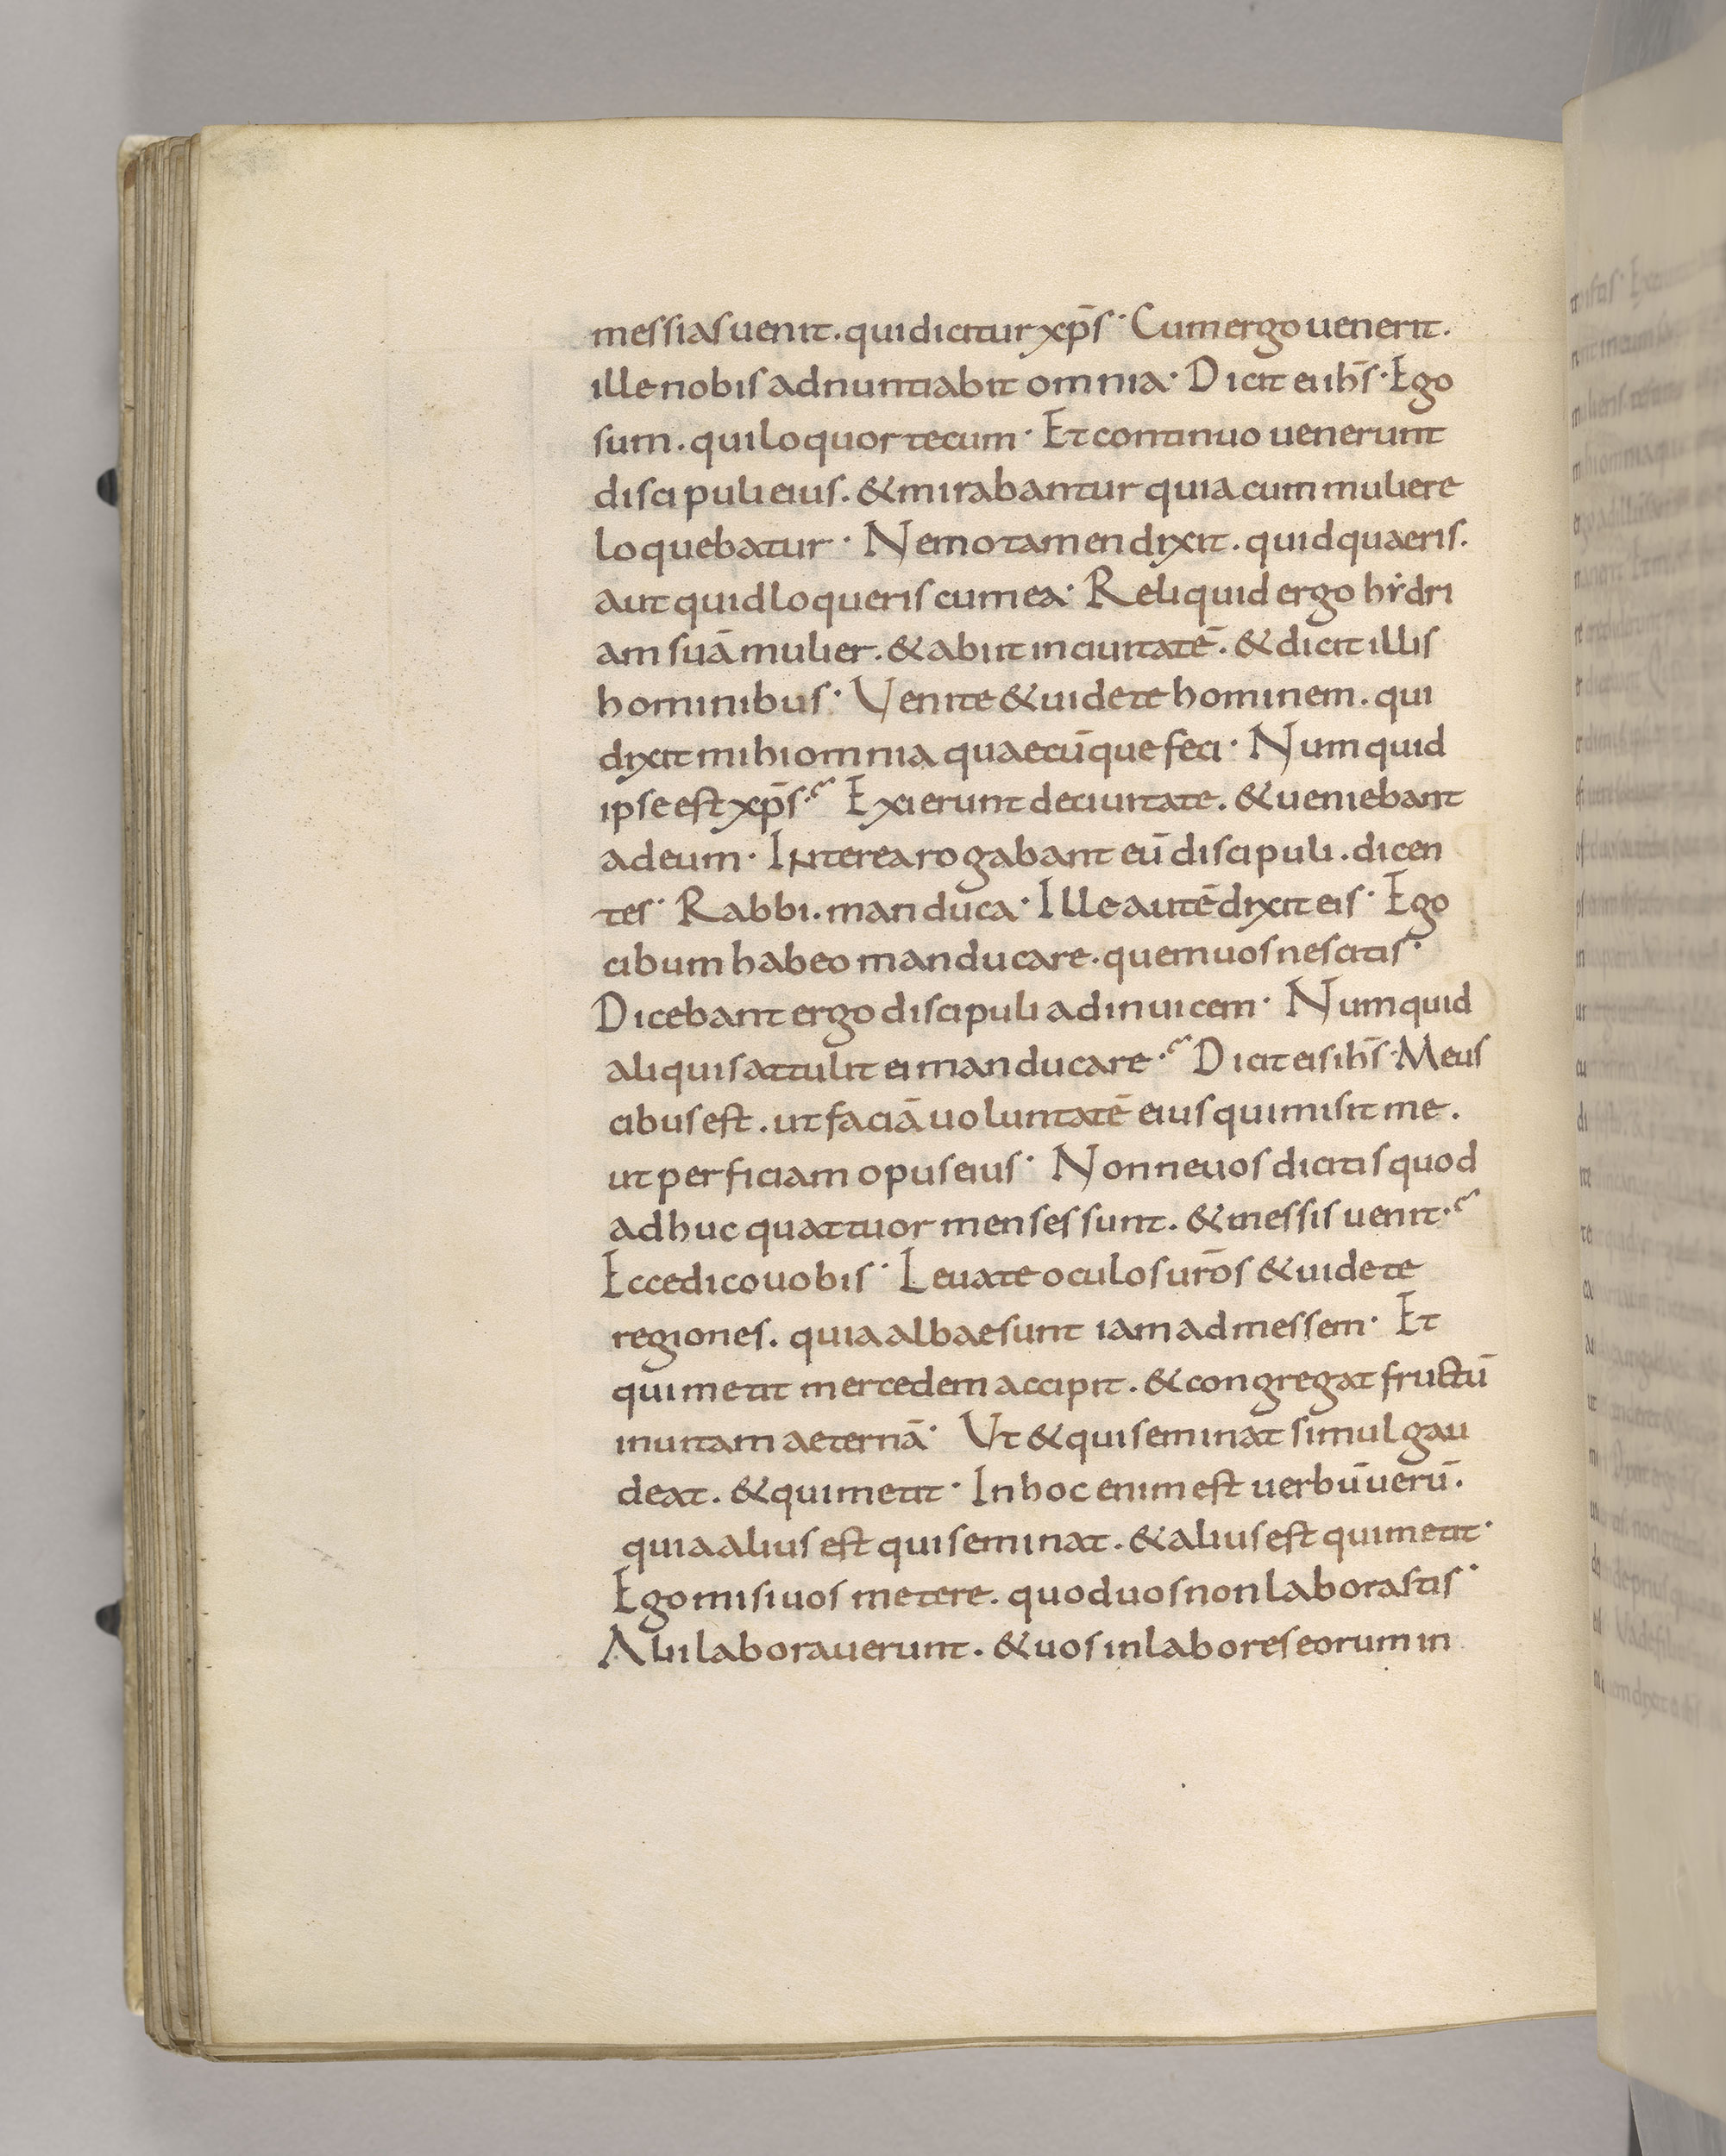 messias uenit. qui dicitur xp̄s· Cum ergo uenerit.
ille nobis adnuntiabit omnia· Dicit ei ih̄s· Ego
sum. qui loquor tecum· Et continuo uenerunt
discipuli eius. & mirabantur quia cum muliere
loquebatur· Nemo tamen dixit. quid quaeris.
aut quid loqueris cum ea· Reliquid ergo hẏdri
am suā mulier. & abiit in ciuitatē. & dicit illis
hominibus· Venite & uidete hominem. qui
dixit mihi omnia quaecūque feci· Numquid
ipse est xp̄s? Exierunt de ciuitate. & ueniebant
ad eum· Interea rogabant eū discipuli. dicen
tes· Rabbi. manduca· Ille autē dixit eis· Ego
cibum habeo manducare. quem uos nescitis·
Dicebant ergo discipuli ad inuicem· Numquid
aliquis attulit ei manducare? Dicit eis ih̄s· Meus
cibus est. ut faciā uoluntatē eius qui misit me.
ut perficiam opus eius· Nonne uos dicitis quod
adhuc quattuor menses sunt. & messis uenit?
Ecce dico uobis· Leuate oculos ur̄os & uidete
regiones. quia albae sunt iam ad messem· Et
qui metit mercedem accipit. & congregat fructū
in uitam aeternā· Ut & qui seminat simul gau
deat. & qui metit· In hoc enim est uerbū uerū.
quia alius est qui seminat. & alius est qui metit·
Ego misi uos metere. quod uos non laborastis·
Alii laborauerunt. & uos in labores eorum in